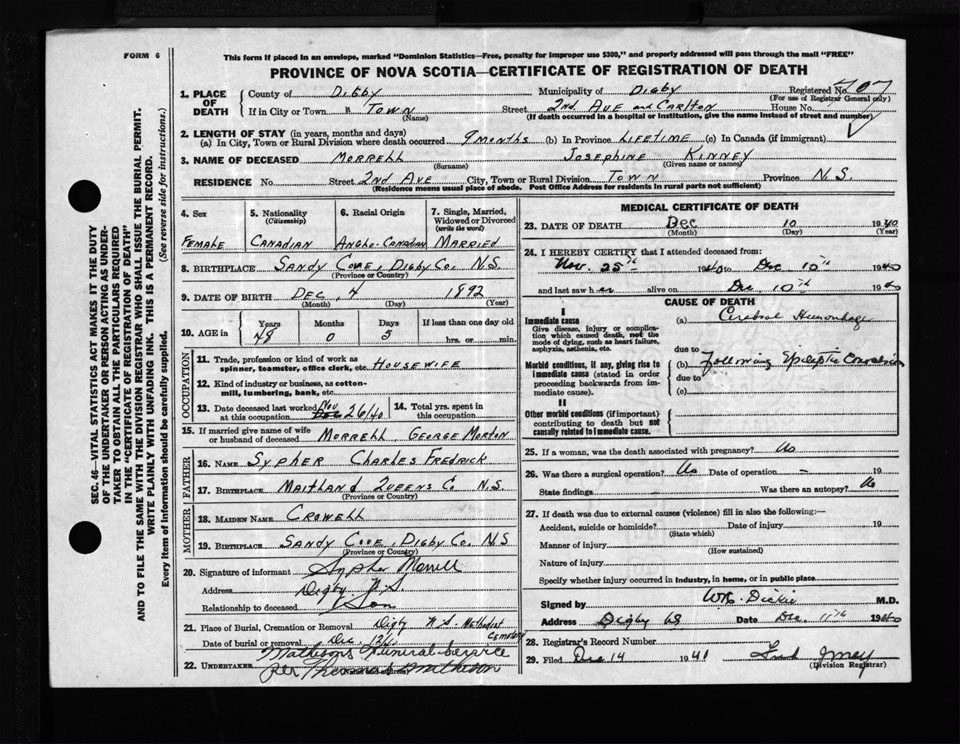 FORM 6
This form if placed in an envelope, marked "Dominion Statistics—Free, penalty for improper use $300," and properly addressed will pass through the mail "FREE"
PROVINCE OF NOVA SCOTIA—CERTIFICATE OF REGISTRATION OF DEATH
SEC. 46—VITAL STATISTICS ACT MAKES IT THE DUTY
OF THE UNDERTAKER OR PERSON ACTING AS UNDER-
TAKER TO OBTAIN ALL THE PARTICULARS REQUIRED
IN THE "CERTIFICATE OF REGISTRATION OF DEATH"
AND TO FILE THE SAME WITH THE DIVISION REGISTRAR WHO SHALL ISSUE THE BURIAL PERMIT.
WRITE PLAINLY WITH UNFADING INK. THIS IS A PERMANENT RECORD.
Every item of information should be carefully supplied. (See reverse side for instructions.)
1. PLACE OF DEATH
County of DIGBY Municipality of DIGBY Registered No. 707
(For use of Registrar General only)
If in City or Town " TOWN Street 2nd AVE and CARLTON House No.
(Name) (If death occurred in a hospital or institution, give the name instead of street and number)
2. LENGTH OF STAY (in years, months and days)
(a) In City, Town or Rural Division where death occurred 9 months (b) In Province LIFETIME (c) In Canada (if immigrant)
3. NAME OF DECEASED MORRELL JOSEPHINE KINNEY
(Surname) (Given name or names)
RESIDENCE No. Street 2nd AVE City, Town or Rural Division TOWN Province N.S.
(Residence means usual place of abode. Post Office Address for residents in rural parts not sufficient)
4. Sex
FEMALE
5. Nationality
(Citizenship)
CANADIAN
6. Racial Origin
ANGLO-CANADIAN
7. Single, Married,
Widowed or Divorced
(write the word)
MARRIED
8. BIRTHPLACE SANDY COVE, DIGBY CO. N.S.
(Province or Country)
9. DATE OF BIRTH DEC, 4 1892
(Month) (Day) (Year)
10. AGE in Years Months Days If less than one day old
48 0 5 hrs. or min.
OCCUPATION
11. Trade, profession or kind of work as
spinner, teamster, office clerk, etc. HOUSEWIFE
12. Kind of industry or business, as cotton-
mill, lumbering, bank, etc.
13. Date deceased last worked
at this occupation Nov 26/40
14. Total yrs. spent in
this occupation
15. If married give name of wife
or husband of deceased MORRELL, GEORGE MORTON
FATHER
16. NAME SYPHER CHARLES FREDRICK
17. BIRTHPLACE MAITLAND QUEENS CO N.S.
(Province or Country)
MOTHER
18. MAIDEN NAME CROWELL
19. BIRTHPLACE SANDY COVE, DIGBY CO. N.S
(Province or Country)
20. Signature of informant Sypher Morrell
Address Digby N.S.
Relationship to deceased Son
21. Place of Burial, Cremation or Removal Digby N.S. Methodist Cemetery
Date of burial or removal Dec. 12/40
22. UNDERTAKER Mathesons Funeral Service
per Thomas Matheson
(Name and address)
MEDICAL CERTIFICATE OF DEATH
23. DATE OF DEATH Dec 10 1940
(Month) (Day) (Year)
24. I HEREBY CERTIFY that I attended deceased from:
Nov. 25th 1940 to Dec 10th 1940
and last saw her alive on Dec 10th 1940
CAUSE OF DEATH
I
Immediate cause
Give disease, injury or complica-
tion which caused death, not the
mode of dying, such as heart failure,
asphyxia, asthenia, etc.
(a) Cerebral Hemorrhage
due to
Morbid conditions, if any, giving rise to
immediate cause (stated in order
proceeding backwards from im-
mediate cause).
(b) Following Epileptic Convulsion
due to
(c)
II
Other morbid conditions (if important)
contributing to death but not
causally related to immediate cause.
25. If a woman, was the death associated with pregnancy? No
26. Was there a surgical operation? No Date of operation – 19
State findings Was there an autopsy? No
27. If death was due to external causes (violence) fill in also the following:—
Accident, suicide or homicide? Date of injury 19
(State which)
Manner of injury
(How sustained)
Nature of injury
Specify whether injury occurred in industry, in home, or in public place
Signed by W.R. Dickie M.D.
Address Digby NS Date Dec. 11th 1940
28. Registrar's Record Number
29. Filed Dec 14 1941
(Division Registrar)